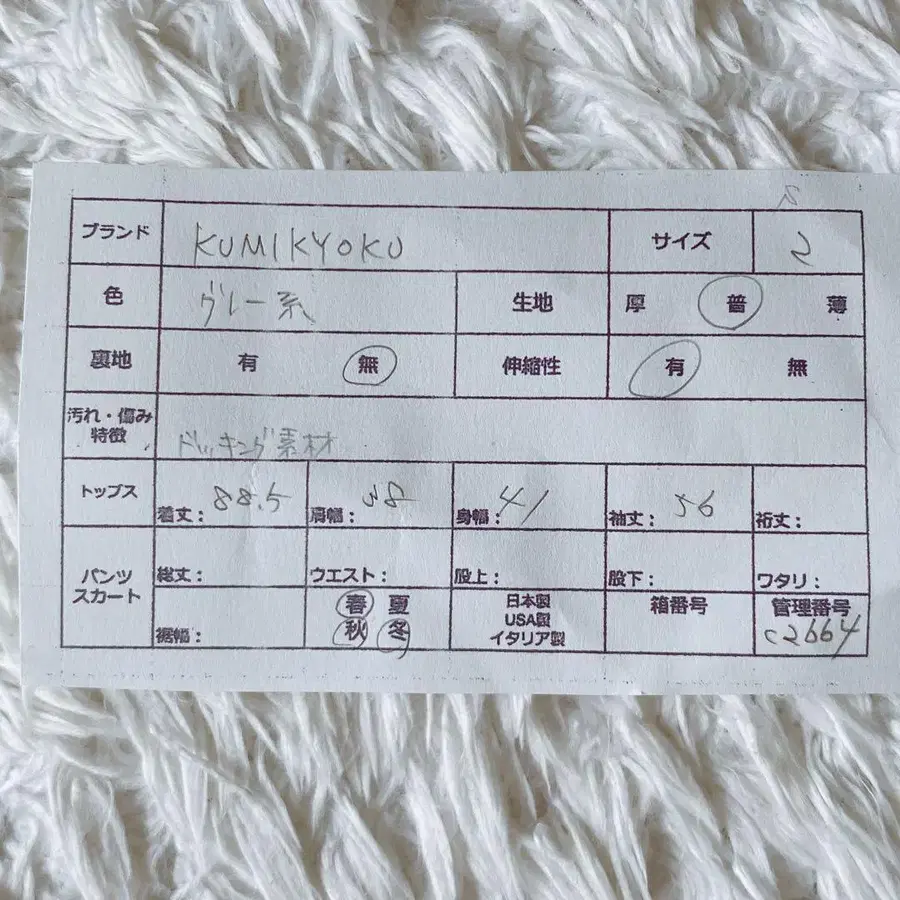 ブランド KUMIKYOKU サイズ 2
色 グレー系 生地 厚 普 薄
裏地 有 無 伸縮性 有 無
汚れ・傷み
特徴 ドッキング素材
トップス 着丈: 88.5 肩幅: 38 身幅: 41 袖丈: 56 裄丈:
パンツ
スカート 総丈: ウエスト: 股上: 股下: ワタリ:
裾幅: 春 夏
秋 冬
日本製
USA製
イタリア製
箱番号
管理番号
C2664